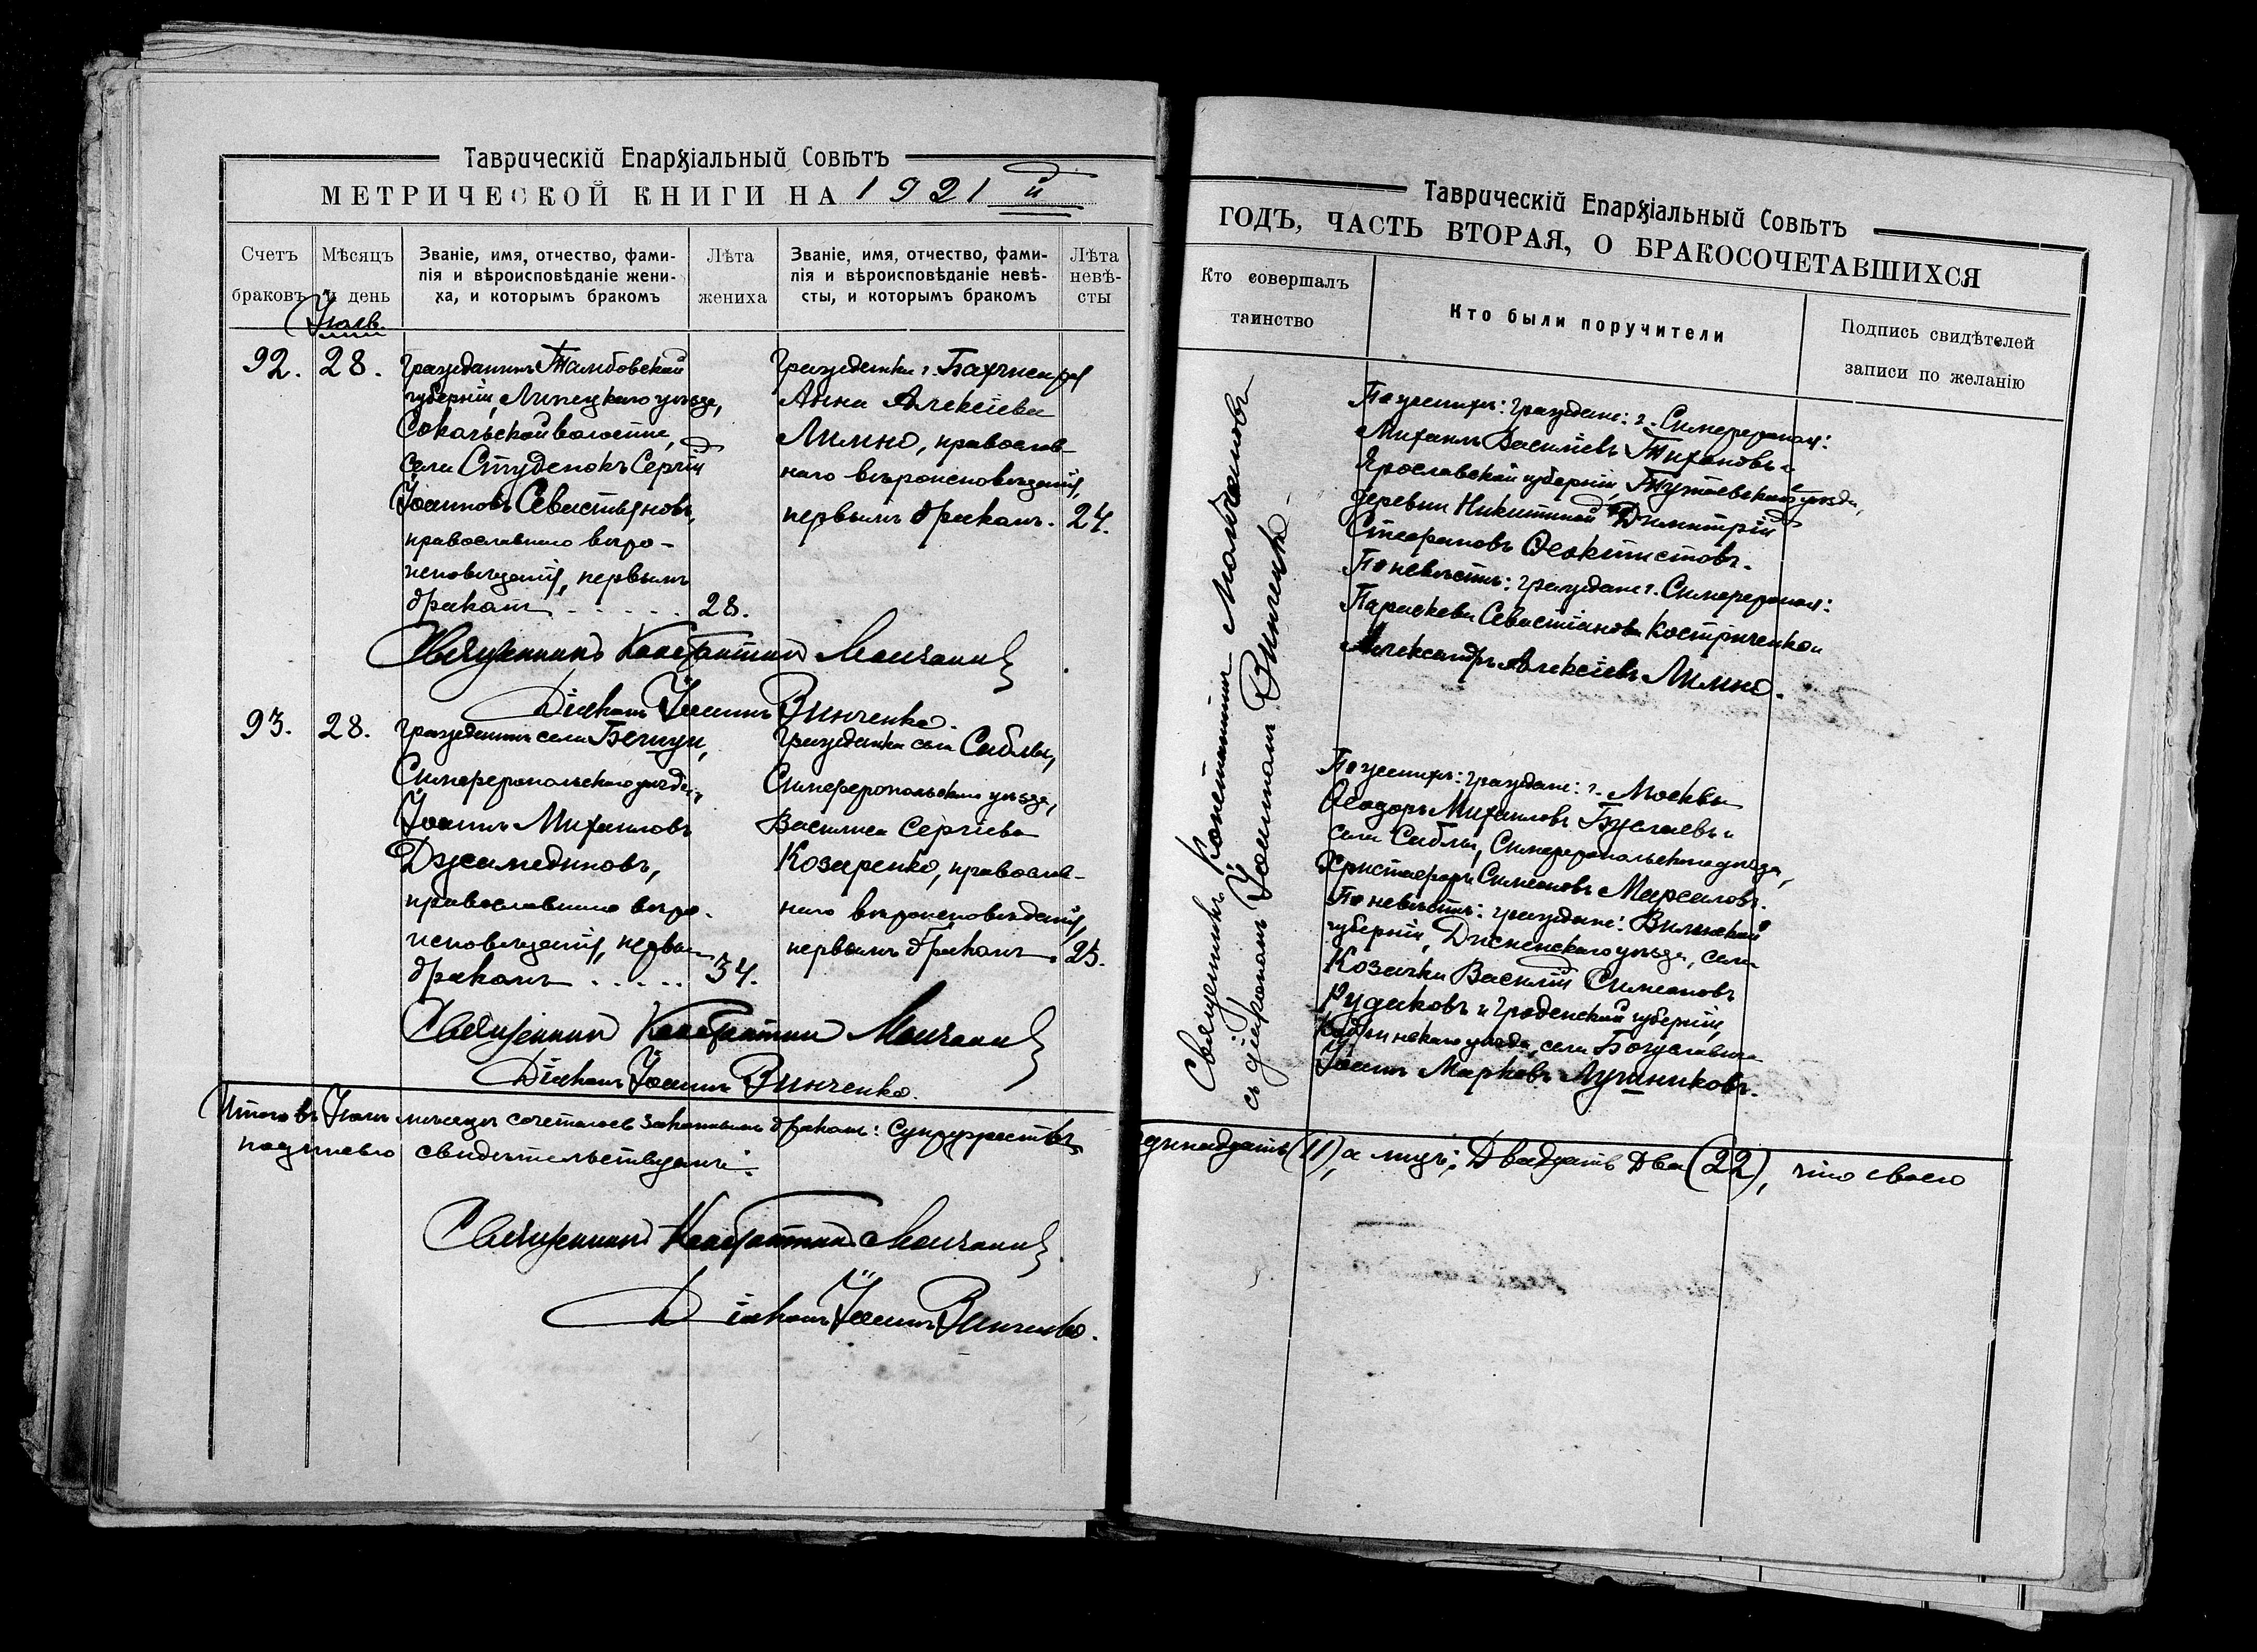 Таврическій Епархіальный Совѣтъ
МЕТРИЧЕСКОЙ КНИГИ НА 1921 й
Счетъ браковъ
Мѣсяцъ и день
Званіе, имя, отчество, фами-
лія и вѣроисповѣданіе жени-
ха, и которымъ бракомъ
Лѣта жениха
Званіе, имя, отчество, фами-
лія и вѣроисповѣданіе невѣ-
сты, и которымъ бракомъ
Лѣта невѣ-
сты
Іюль.
92.
28.
Гражданинъ Тамбовской
губерніи, Липецкаго уѣзда,
Сокольской волости,
села Студенокъ Сергій
Іоанновъ Севастьяновъ,
православнаго вѣро-
исповѣданія, первымъ
бракомъ . . . . . 28.
Гражданка г. Бахчисарая
Анна Алексіева
Лимно, православ-
наго вѣроисповѣданія,
первымъ бракомъ. 24.
Священникъ Константинъ Молчановъ
Діаконъ Іоаннъ Винченко.
93.
28.
Гражданинъ села Бешуи,
Симферопольскаго уѣзда,
Іоаннъ Михаиловъ
Джамединовъ,
православнаго вѣро-
исповѣданія, первымъ
бракомъ . . . . . 34.
Гражданка села Саблы,
Симферопольскаго уѣзда,
Василиса Сергіева
Козаренко, православ-
наго вѣроисповѣданія,
первымъ бракомъ. 25.
Священникъ Константинъ Молчановъ
Діаконъ Іоаннъ Винченко.
Итого въ Іюлѣ мѣсяцѣ сочеталось законнымъ бракомъ: супружествъ
подписью свидѣтельствуемъ:
Священникъ Константинъ Молчановъ
Діаконъ Іоаннъ Винченко.
Таврическій Епархіальный Совѣтъ
ГОДЪ, ЧАСТЬ ВТОРАЯ, О БРАКОСОЧЕТАВШИХСЯ
Кто совершалъ
таинство
Кто были поручители
Подпись свидѣтелей
записи по желанію
Священникъ Константинъ Молчановъ
съ діакономъ Іоанномъ Винченко.
По женихѣ: граждане: г. Симферополя:
Михаилъ Василіевъ Тихановъ и
Ярославской губерніи, Тутаевскаго уѣзда,
деревни Никитиной Димитрій
Стефановъ Ѳеоктистовъ.
По невѣстѣ: граждане г. Симферополя:
Параскева Севастіанова Костриченко и
Александръ Алексіевъ Лимно.
По женихѣ: граждане: г. Москвы
Ѳеодоръ Михаиловъ Буслаевъ и
села Саблы, Симферопольскаго уѣзда,
Христофоръ Симеоновъ Марсаловъ.
По невѣстѣ: граждане: Виленской
губерніи, Дисненскаго уѣзда, села
Козачки Василій Симеоновъ
Рудаковъ и Гродненской губерніи,
Кобринскаго уѣзда, села Богуславича
Іоаннъ Марковъ Лушниковъ.
одиннадцать (11), а лицъ: Двадцать Два (22), что своею